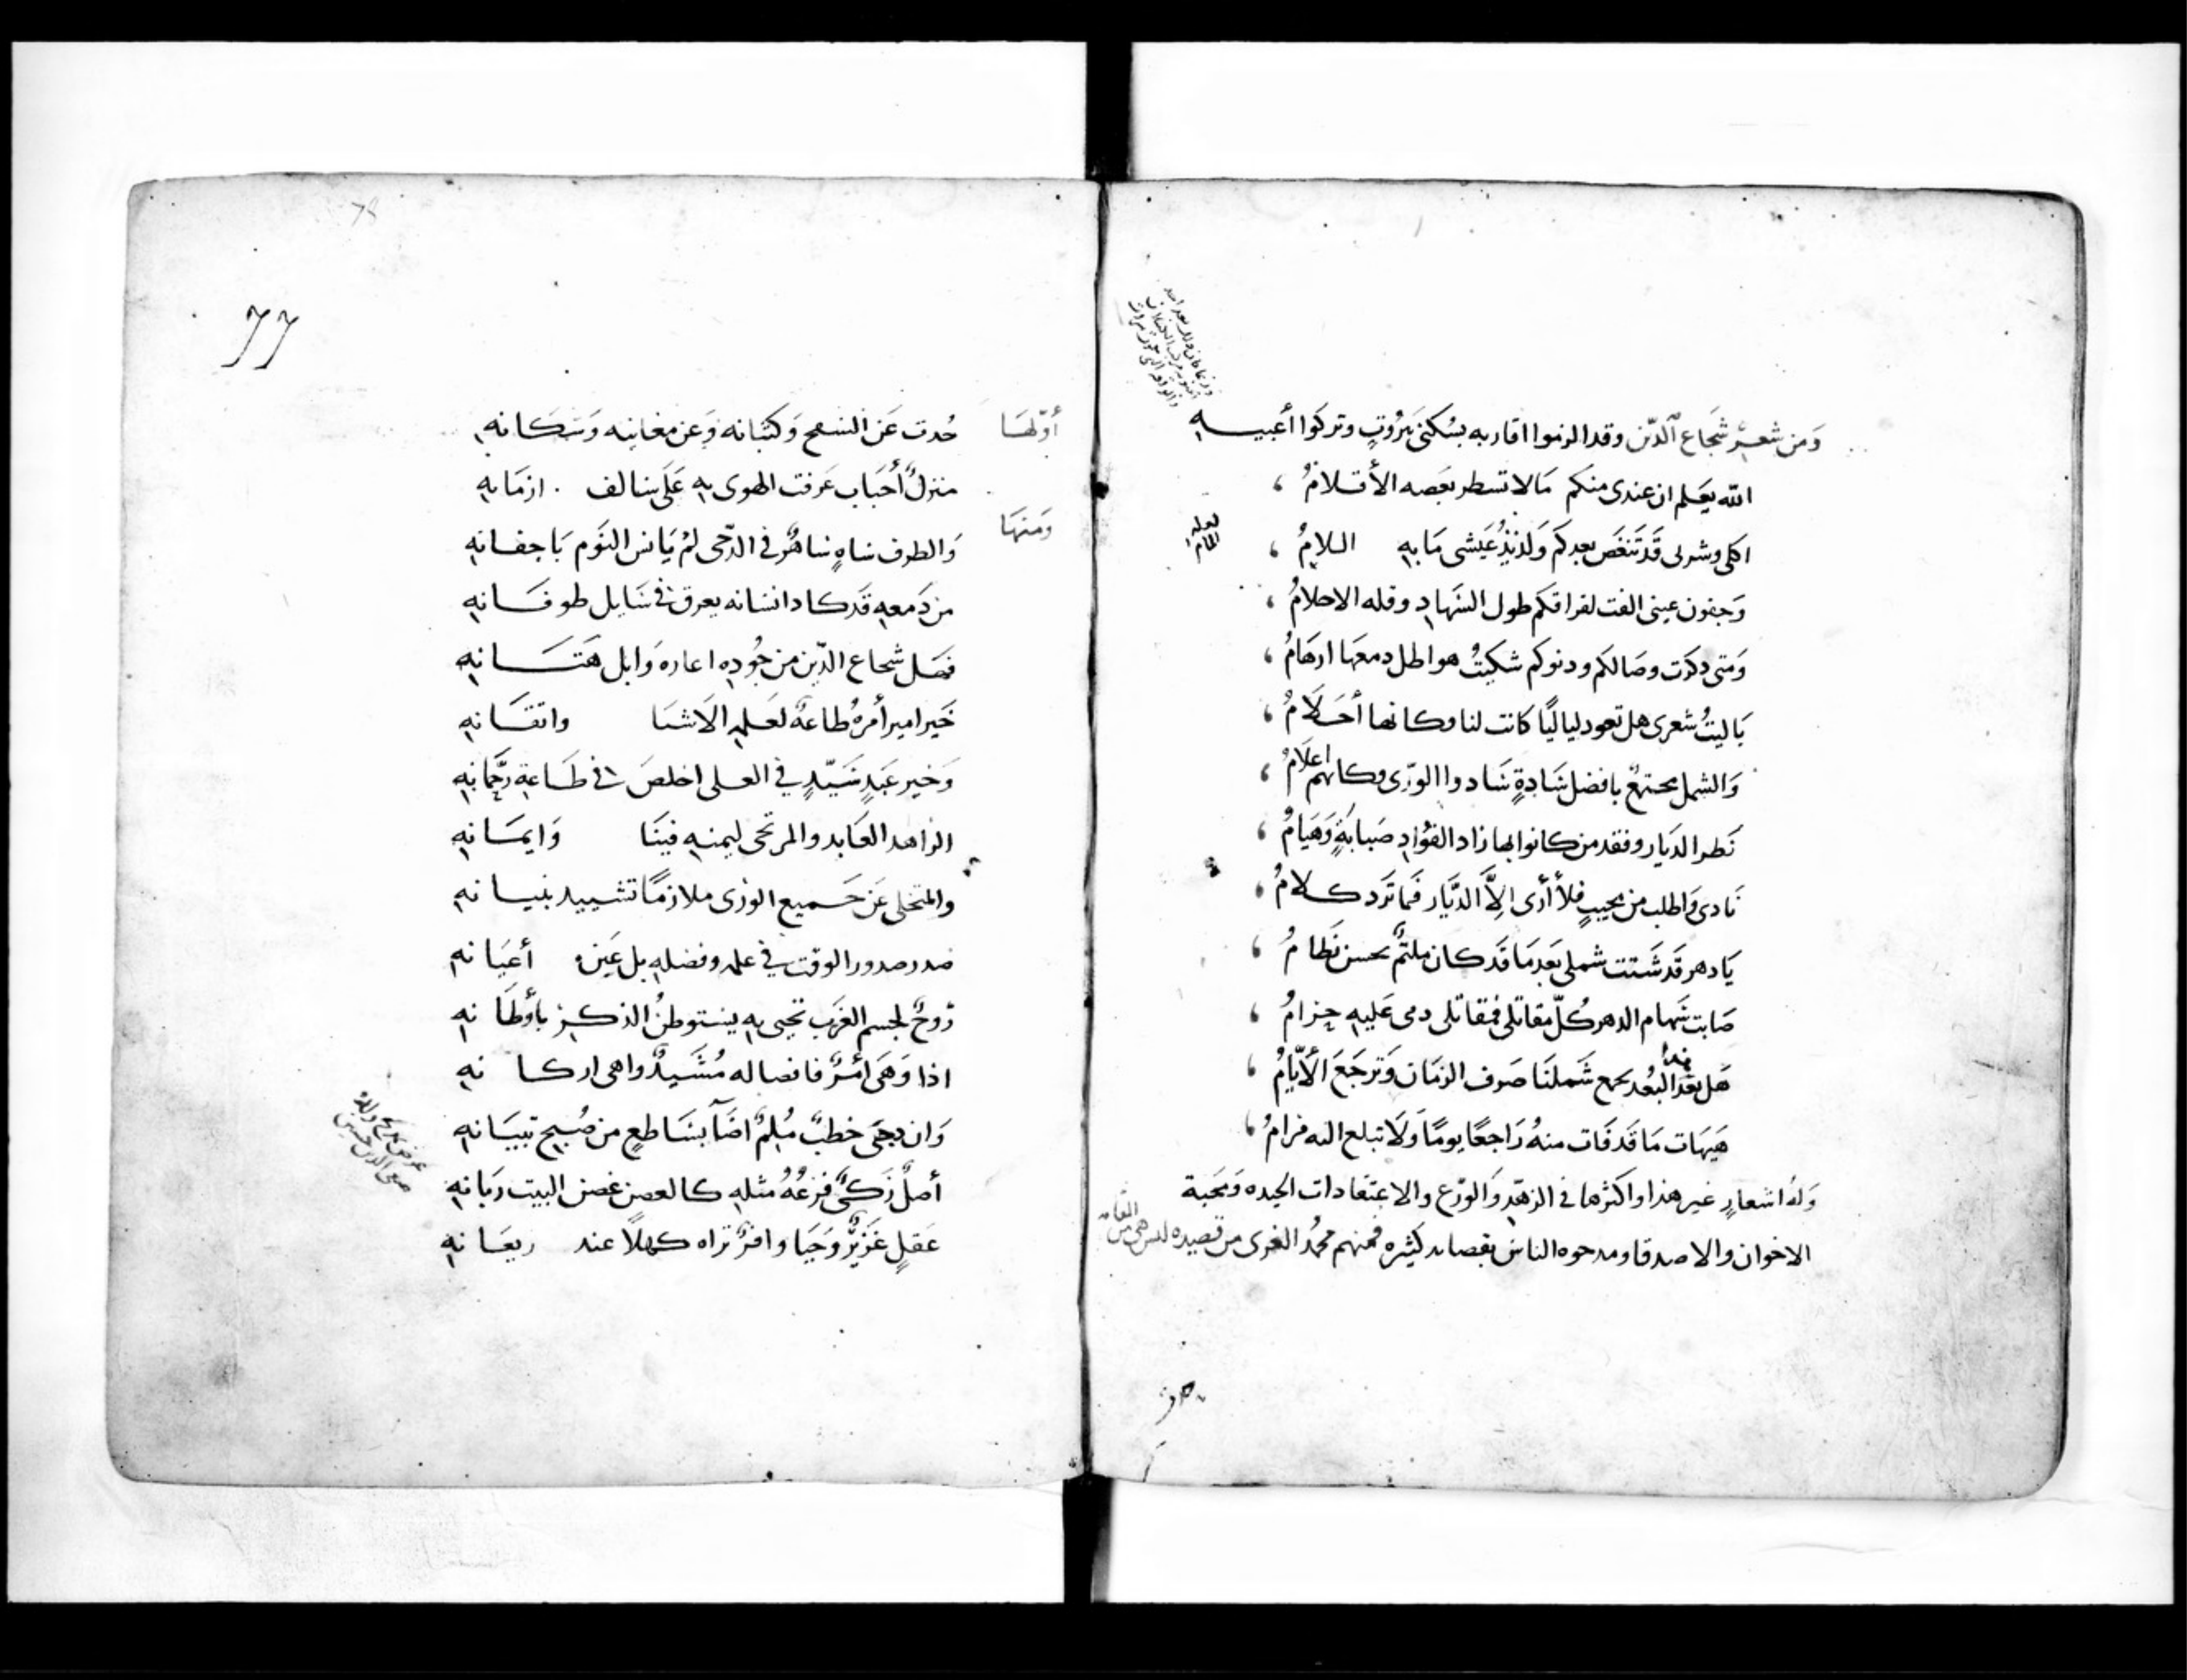 وَمن شعر شجَاع الدّين وقد الزموا اقاربه بسُكنى بَيرُوتٍ وتركوا أعبيه
الله يعَلم ان عندى منكم مَا لا تسطر بعَضه الأقلامُ
اكلى وشربى قَد تَنغَص بعدكم وَلذيذُ عَيشى مَا به الىلامُ
لعله
وَجفون عينى الفت لفراقكم طول السَهادِ وقله الاحلامُ
وَمتى ذكرت وصَالكم ودنوكم سكبتُ هواطل دمعهَا ارهَامُ
يَا ليتُ شعرى هل تعود لياليًا كانت لنا وكانها أحَلَامُ
وَالشمل مجتمعٌ بافضل سَادةٍ سَادوا الورَى وكانهم اعلَامُ
نَظر الديَار وفقد من كانوا بها زاد الفؤادِ صَبابَةٍ وَهيَامُ
نَادى وَاطلب من مجيبٍ فلا أرَى اِلاَّ الديَّار فمَا تَرد كلامُ
يَا دهر قَد شَتت شملى بَعد مَا قد كان ملتمٌ بحسن نَظامُ
صَابت سَهام الدهر كُلّ مقاتلى فمقاتلى دمى عَليه حِزامُ
هَل بعَد هذا البعُد يجمع شَملنَا صَرف الزمَان وَترجَعَ الأيّامُ
هَيهَات مَا قَد فَات منهُ رَاجعًا يومًا وَلَا تبلع اليه مرامُ
وَلهُ اشعارٍ غير هذا واكثرها فى الزهدِ وَالورَع والاعتقادات الجيده وَمحَبة
الاخوان والاصدقا ومدحوه الناس بقصايد كثيره فمنهم محمدُ الغزى من قصيده
77
أوّلهَا حُدت عَن السَفح وَكثبانه وَعن مغانيه وَسَكَانهِ
منزلُ أحبَاب عَرفت الهوى بهِ عَلَى سَالف ازمَانهِ
وَمنهَا وَالطرف سَاهٍ سَاهرٌ فى الدّجى لمْ يَانس النوَم بَاجفانهِ
من دَمعهِ قَد كاد انسَانه يعرق فى سَايل طوفَانهِ
فهَل شجاع الدّين من جُودهِ اعاره وَابل هَتَانهِ
خَير امير أمرهُ طاعةٌ لعَلمهِ الَاشيَا واتقَانهِ
وَخير عَبدٍ سَيّدٍ فى العلى اخلصَ فى طَاعةِ رَحَمانهِ
الزاهد العَابد والمرتجى ليمنهِ فينَا وَايمَانهِ
والمتخلى عَن جَميع الورَى ملازمًا تشييد بنيانهِ
صدر صدور الوقت فى علمه وفضلهِ بل عَين أعيَانهِ
رُوحٌ لجسم الغَرب تحيى بهِ يستوطنُ الذكر بأوطَانهِ
اذا وَهَى أمرٌ فانصاله مُشَيدٌ واهى اركانهِ
وَان دجَى خطبٌ مُلِمٌ اضَآ بسَاطعٍ من صُبحِ تبيَانهِ
أصلٌ زَكىٌّ فرعُهُ مثلهِ كالعصن غصن البيت ريَانهِ
عَقلٍ غَزيرٌ وَحيَا وافرٌ تراه كهلًا عند ريعَانهِ